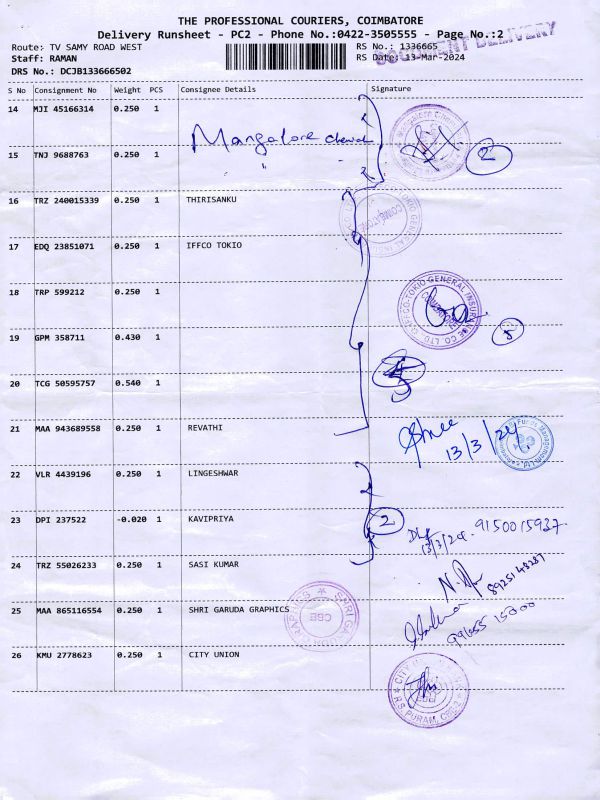 THE PROFESSIONAL COURIERS, COIMBATORE
Delivery Runsheet - PC2 - Phone No.:0422-3505555 - Page No.:2
Route: TV SAMY ROAD WEST
RS No.: 1336665
Staff: RAMAN
RS Date: 13-Mar-2024
DRS No.: DCJB133666502
DELIVERY
S No Consignment No Weight PCS Consignee Details Signature
14 MJI 45166314 0.250 1
Mangalore
15 TNJ 9688763 0.250 1 " " 2
16 TRZ 240015339 0.250 1 THIRISANKU
17 EDQ 23851071 0.250 1 IFFCO TOKIO
18 TRP 599212 0.250 1
IFFCO-TOKIO GENERAL INSURANCE CO. LTD.
19 GPM 358711 0.430 1 5
20 TCG 50595757 0.540 1
21 MAA 943689558 0.250 1 REVATHI
13/3/24
22 VLR 4439196 0.250 1 LINGESHWAR
23 DPI 237522 -0.020 1 KAVIPRIYA 2
13/3/24 9150015937
24 TRZ 55026233 0.250 1 SASI KUMAR
8925148287
25 MAA 865116554 0.250 1 SHRI GARUDA GRAPHICS
SHRI GARUDA GRAPHICS CBE
99655 15000
26 KMU 2778623 0.250 1 CITY UNION
CITY U
R.S. PURAM, CBE-2